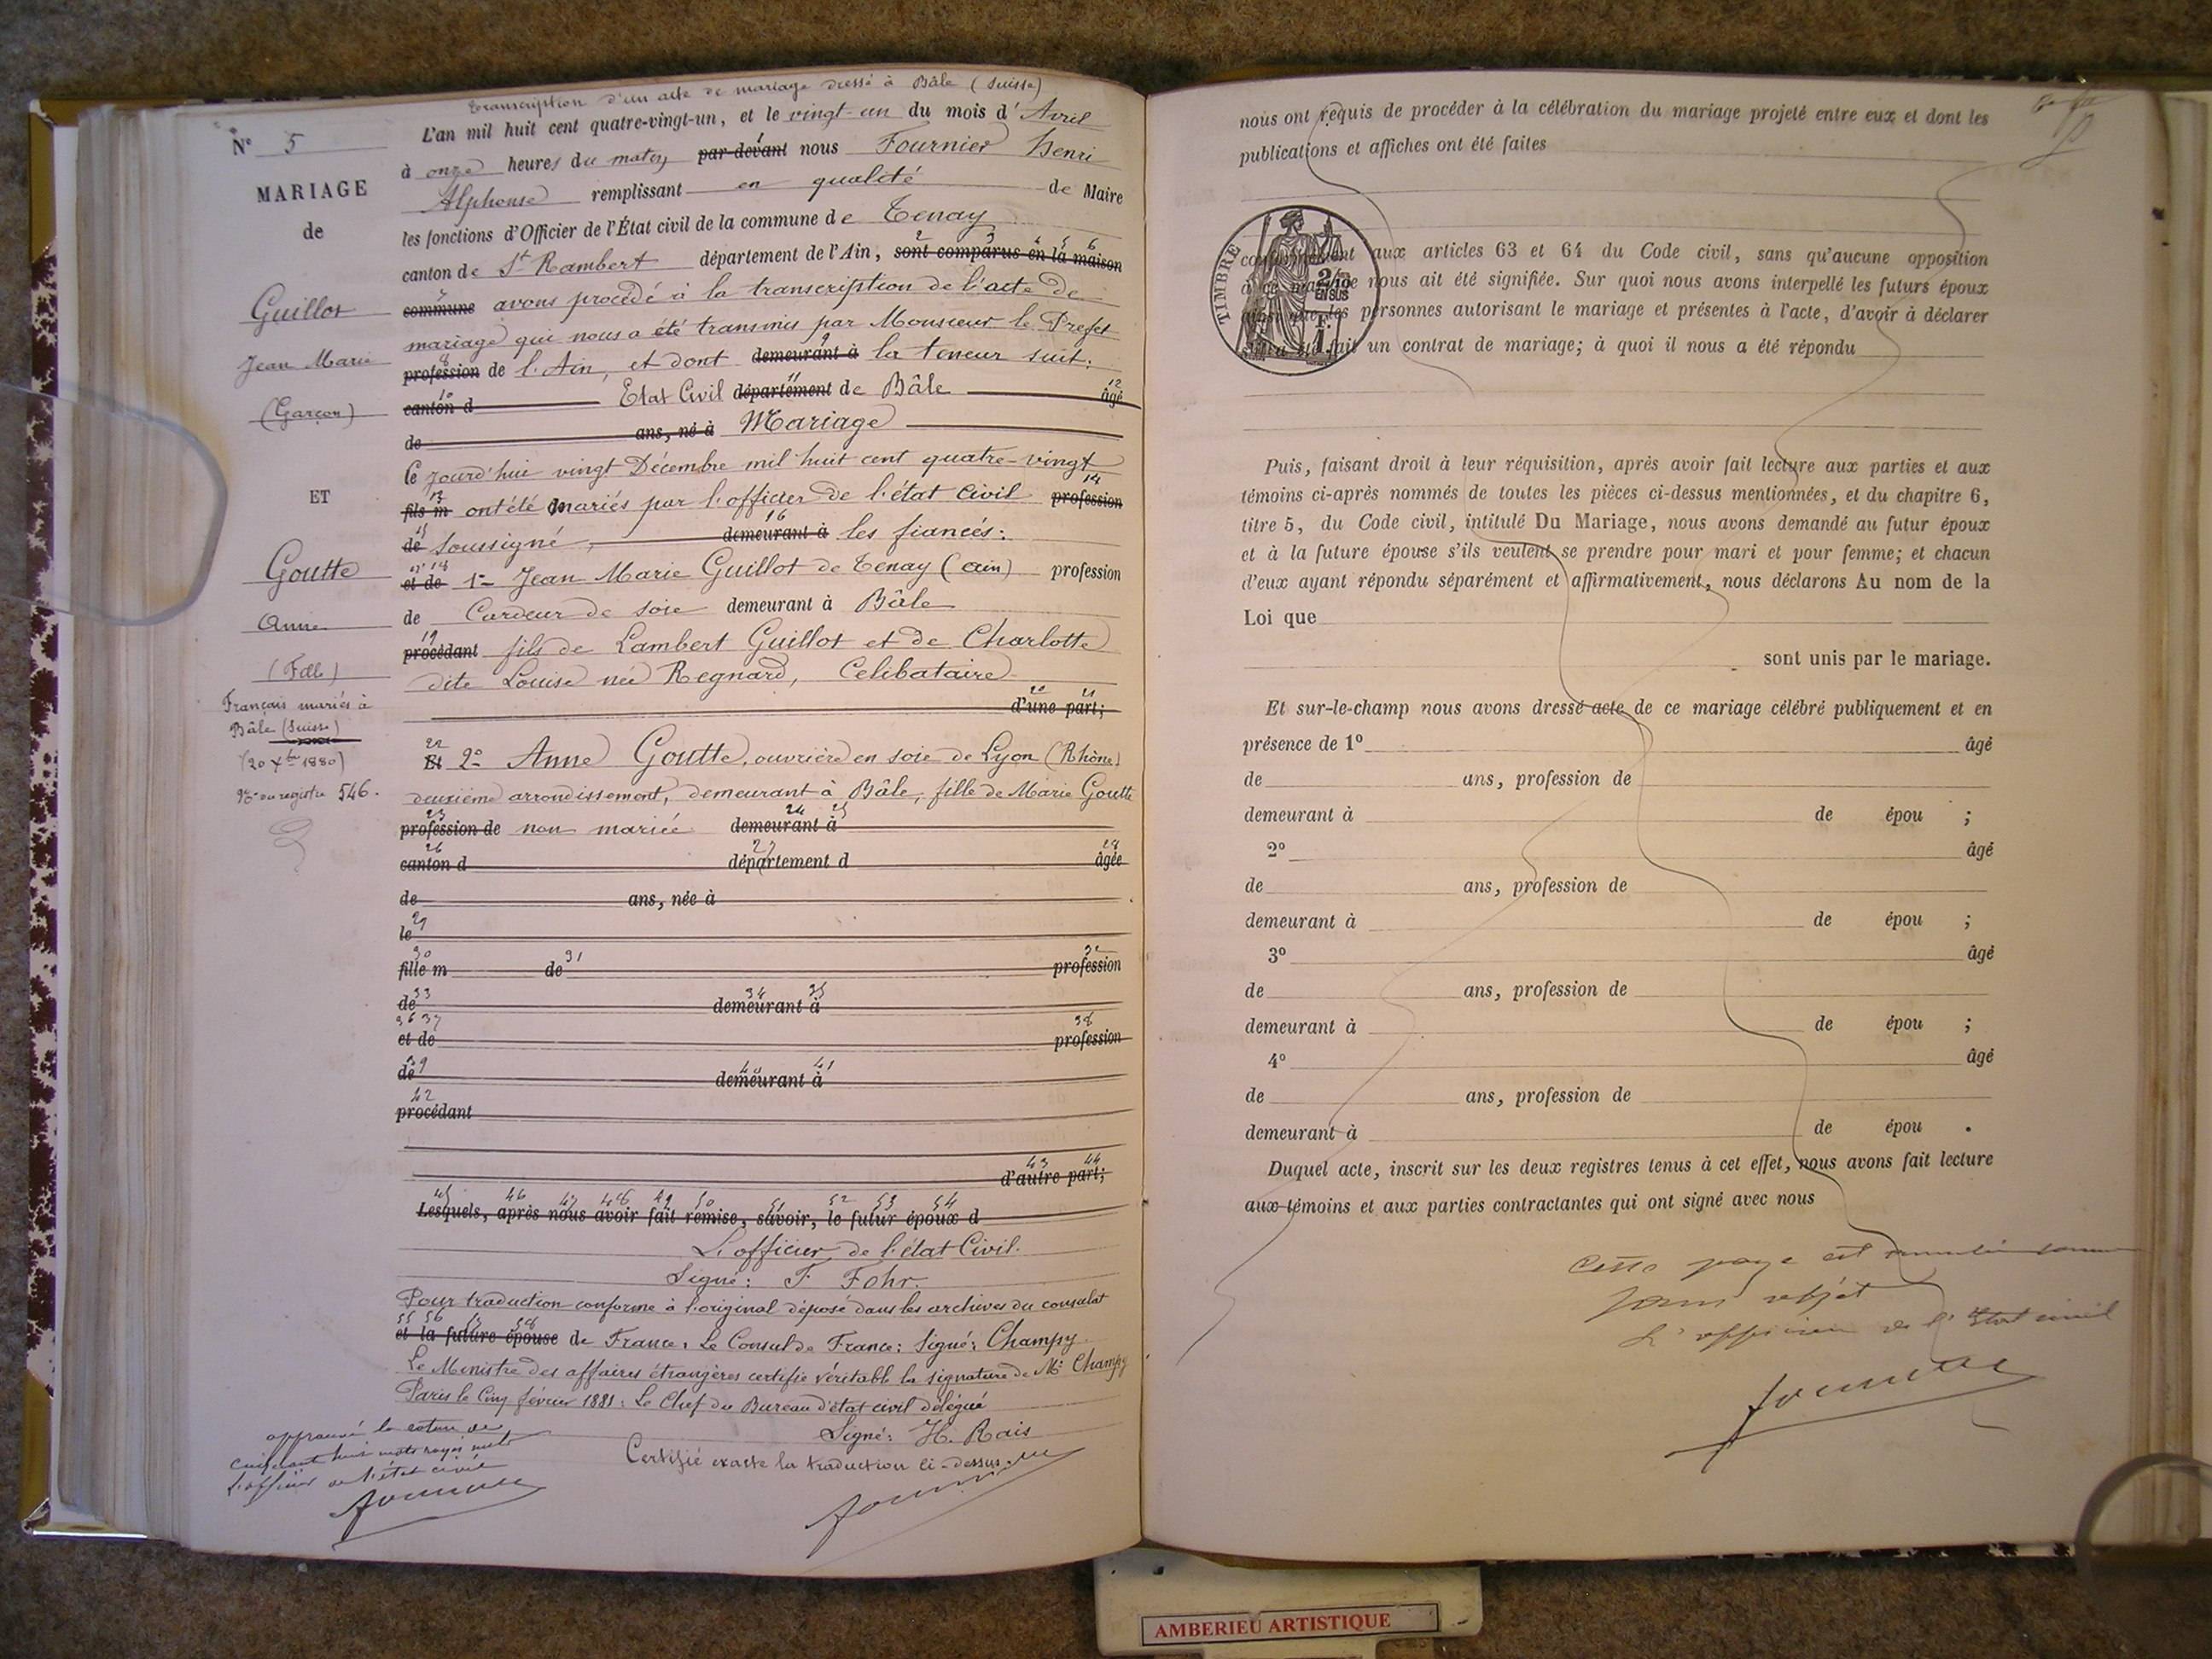 Transcription d'un acte de mariage dressé à Bâle (Suisse)
N° 5
MARIAGE
de
Guillot
Jean Marie
(Garçon)
ET
Goutte
Anne
(Fille)
Français mariés à
Bâle (Suisse)
(20 Xbre 1880)
N° du registre 546.
L'an mil huit cent quatre-vingt-un, et le vingt-un du mois d'Avril
à onze heures du matin par-devant nous Fournier Henri
Alphonse remplissant en qualité de Maire
les fonctions d'Officier de l'État civil de la commune de Tenay
canton de St Rambert département de l'Ain, sont comparus en la maison
commune avons procédé à la transcription de l'acte de
mariage qui nous a été transmis par Monsieur le Préfet
profession de l'Ain, et dont demeurant à la teneur suit:
canton d Etat Civil département de Bâle âgé
de ans, né à Mariage
Ce jourd'hui vingt Décembre mil huit cent quatre-vingt
fils m ont été mariés par l'officier de l'état civil profession
de soussigné, demeurant à les fiancés:
et de 1° Jean Marie Guillot de Tenay (Ain) profession
de Cardeur de soie demeurant à Bâle
procédant fils de Lambert Guillot et de Charlotte
dite Louise née Regnard, Celibataire
d'une part;
Et 2° Anne Goutte, ouvrière en soie de Lyon (Rhône)
deuxième arrondissement, demeurant à Bâle, fille de Marie Goutte
profession de non mariée demeurant à
canton d département d âgée
de ans, née à
le
fille m de profession
de demeurant à
et de profession
de demeurant à
procédant
d'autre part;
Lesquels, après nous avoir fait remise, savoir, le futur époux d
L'officier de l'état Civil.
Signé: F Fohr.
Pour traduction conforme à l'original déposé dans les archives du consulat
et la future épouse de France, Le Consul de France: Signé: Champy
Le Ministre des affaires étrangères certifie véritable la signature de Mr Champy
Paris le Cinq février 1881: Le Chef du Bureau d'état civil délégué
Signé: H. Rais
Certifié exacte la traduction ci-dessus.
Fournier
approuvé la rature de
cinquante huit mots rayés nuls
L'officier de l'état civil
Fournier
nous ont requis de procéder à la célébration du mariage projeté entre eux et dont les
publications et affiches ont été faites
TIMBRE
2/10
EN SUS
F.
1
conformément aux articles 63 et 64 du Code civil, sans qu'aucune opposition
à ce mariage nous ait été signifiée. Sur quoi nous avons interpellé les futurs époux
ainsi que les personnes autorisant le mariage et présentes à l'acte, d'avoir à déclarer
s'il a été fait un contrat de mariage; à quoi il nous a été répondu
Puis, faisant droit à leur réquisition, après avoir fait lecture aux parties et aux
témoins ci-après nommés de toutes les pièces ci-dessus mentionnées, et du chapitre 6,
titre 5, du Code civil, intitulé Du Mariage, nous avons demandé au futur époux
et à la future épouse s'ils veulent se prendre pour mari et pour femme; et chacun
d'eux ayant répondu séparément et affirmativement, nous déclarons Au nom de la
Loi que
sont unis par le mariage.
Et sur-le-champ nous avons dressé acte de ce mariage célébré publiquement et en
présence de 1° âgé
de ans, profession de
demeurant à de épou ;
2° âgé
de ans, profession de
demeurant à de épou ;
3° âgé
de ans, profession de
demeurant à de épou ;
4° âgé
de ans, profession de
demeurant à de épou .
Duquel acte, inscrit sur les deux registres tenus à cet effet, nous avons fait lecture
aux témoins et aux parties contractantes qui ont signé avec nous
Cette page est annulée comme
sans objet
L'officier de l'Etat civil
Fournier
AMBERIEU ARTISTIQUE